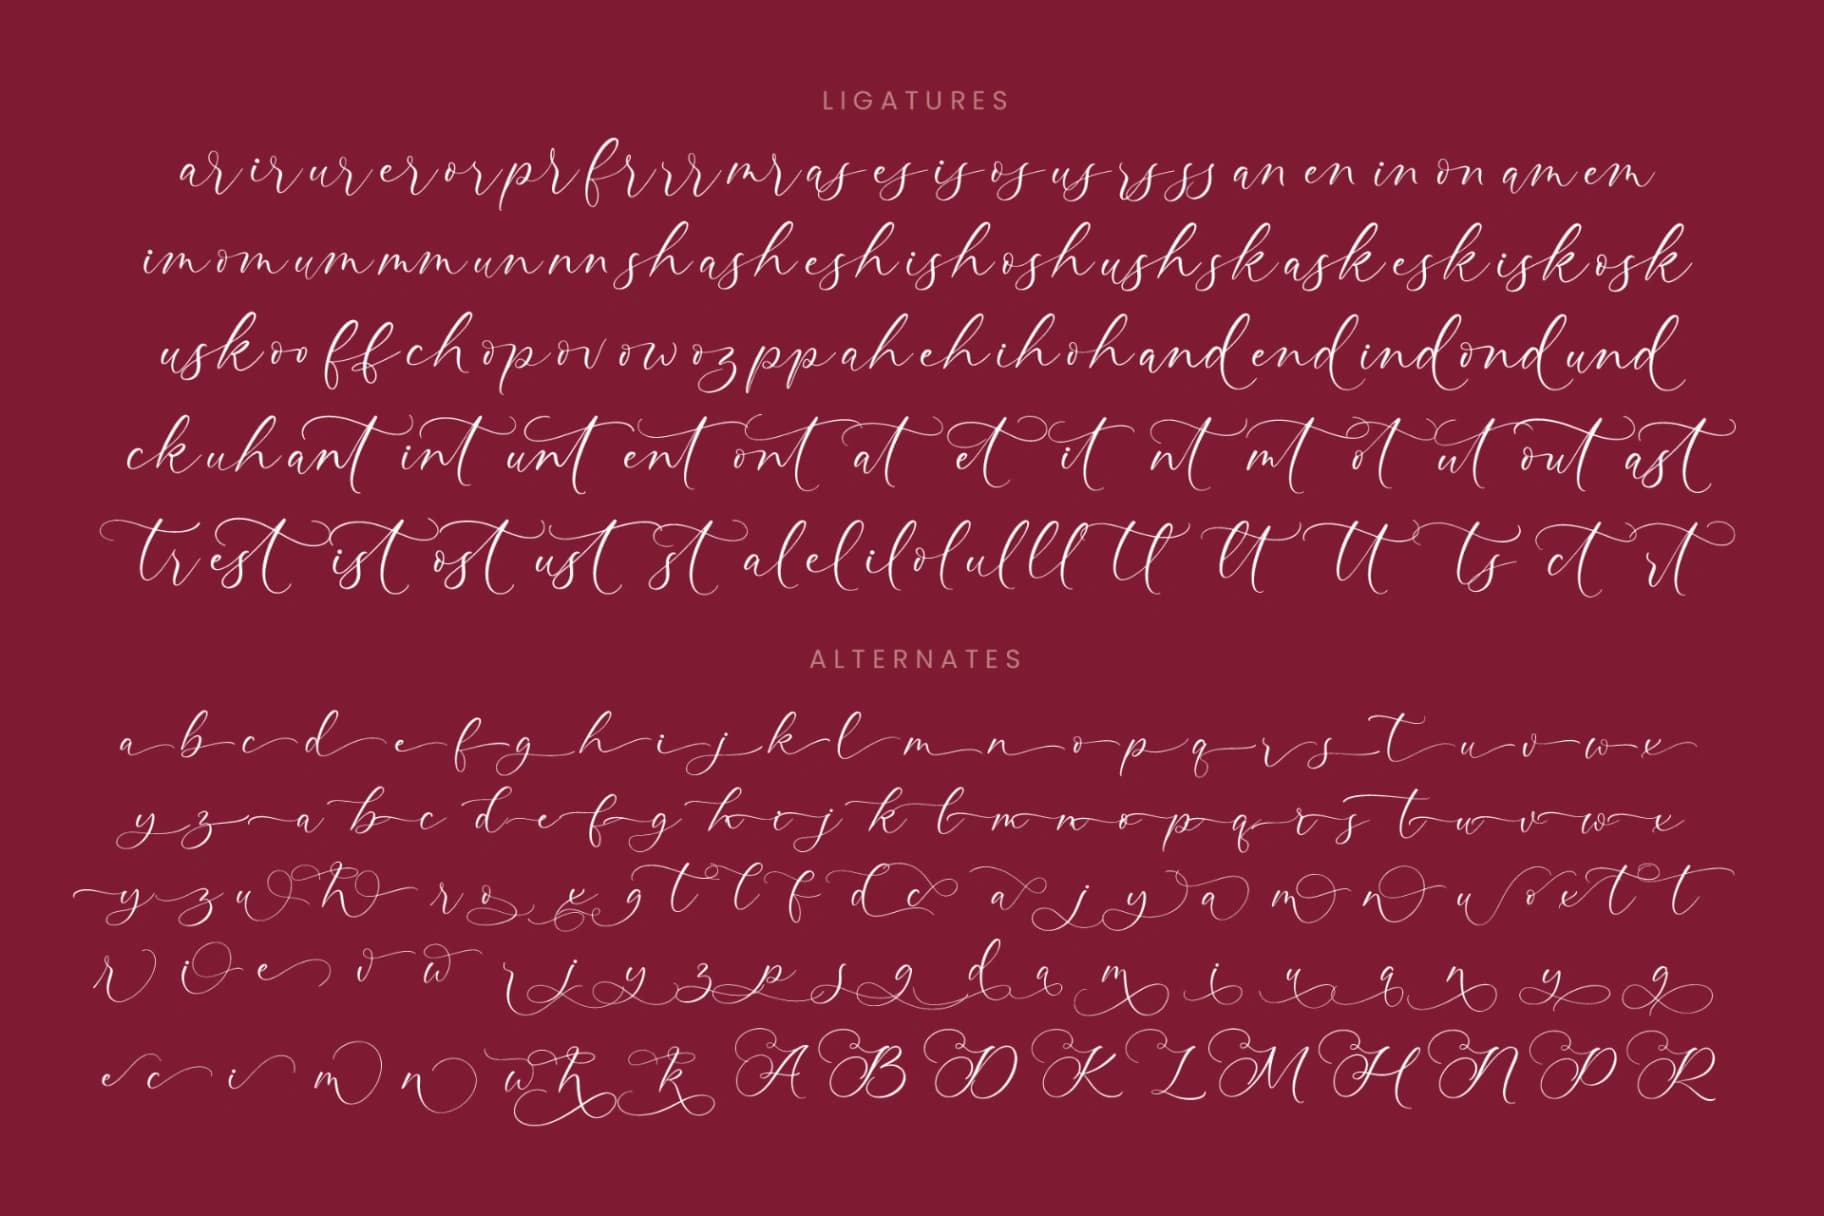 LIGATURES
ar ir ur er or pr fr rr mr as es is os us rs ss an en in on am em
im om um mm un nn sh ash esh ish osh ush sk ask esk isk osk
usk oo ff ch op ov ow oz pp ah eh ih oh and end ind ond und
ck uh ant int unt ent ont at et it nt mt ot ut out ast
tr est ist ost ust st al el il ol ul ll tl lt tt ts ct rt
ALTERNATES
a b c d e f g h i j k l m n o p q r s t u v w x
y z a b c d e f g h i j k l m n o p q r s t u v w x
y z u h r o x g t l f d c a j y a m n u o x t t
r i e v w r j y z p s g d a m i u a n y g
e c i m n w h k A B D K L M H N P R